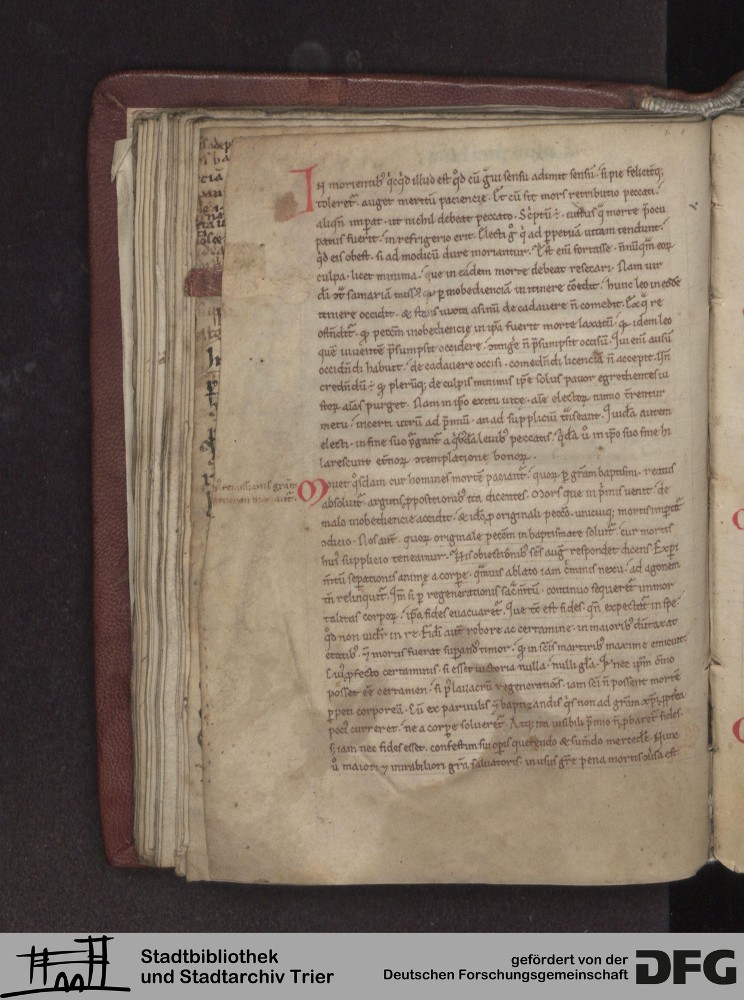 In morientib' qicqid illud est qod cū gͣui sensu adimit sensū. si pie feliciterq;
toleret̄. auget meritū paciencię. Et cū sit mors retributio peccati.
aliqn̄ impat. ut nichil debeat peccato. Sc̄ptū ÷. iustus qͥ morte p̄ocu
patus fuerit. in refrigerio erit. Electi gͦ qͥ ad ppetuā uitam tendunt.
qͥd eis obest. si ad modicū dure moriuntur. Est eni fortasse nn̄uqͣm eoꝝ
culpa. licet minima. que in eadem morte debeat resecari. Nam uir
dī ꝯtͣ samariā missus p inobedienciā in itinere comedit. hunc leo in eodē
itinere occidit. & stans iuxta asinū de cadauere n̄ comedit. Ex qͣ re
ostn̄dit̄. qꝫ petcm̄ inobediencie in ipͣa fuerit morte laxatū. qꝫ idem leo
quē uiuentē p̄sumpsit occidere. ꝯtinge n̄ p̄sumpsit occisū. Qui eni ausū
occidn̄di habuit. de cadauere occisi. comedn̄di licenciā n̄ accepit. Sn̄
credn̄dū ÷ qꝫ pleruqꝫ de culpis minimis ipse solus pauor egredientes iu
storꝝ aīas purget. Nam in ipo exitu uitę. aīe electoꝝ nimo t̄rentur
metu. incerti utrū ad p̄miū. an ad suppliciū tͣnseant. Quidā autem
electi. in fine suo pͥgant̄ a qbͥdā leuib' peccatis. Qͥdā u̇ in ipo suo fine hi
larescunt et̄noꝝ ꝯtemplacione bonoꝝ.
Mouet qͦsdam cur homines mortē paciant̄. quoꝝ p grām baptismi. reatus
absoluit̄. argutis ppositionib' ita dicentes. Mors que in pͥmis uenit. de
malo inobediencie accidit. & ido p originali pecco. unicuiqꝫ mortis impͥcat̄
ꝯdicio. Nos aut̄. quoꝝ originale peccm̄ in baptismate soluit̄. cur mortis
hui' supplicio teneamur. His obiectionib' scs̄ aug' respondet dicens. Expi
m̄tū sepationis animę a corpe. qͣmuis ablato iam cͥminis nexu. ad agonem
tn̄ relinquit̄. Qm̄ si p regenerationis sacm̄tū. continuo sequeret̄ inmor
talitas corpoꝝ. ipͣa fides euacuaret̄. Que tc̄ est fides. qn̄ expectat̄ in spe
qͦd non uidet̄ in re. Fidei aut̄ robore ac certamine. in maioribͣ dūtaxat
etatib'. & mortis fuerat supandus timor. qꝫ in scīs martirib' maxime emicuit.
Cui' pfecto certaminis. si esset uictoria nulla. nulla glā. Qͥ nec ipm̄ omīo
posset eē certamen. si p lauacrū regenerationis. iam scī n̄ possent mortē
ppeti corporeā. Cū ex paruulis & baptizandis qͥs non ad grām xpi. ipsͣa
poci' curreret. ne a corpe solueret̄. Atqꝫ ita uisibili p̄mio n̄ pbaret̄ fides.
sꝫ iam nec fides esset. confestim sui opis querendo & sumdo mercedē. Nunc
u̇ maiori & mirabiliori grā saluatoris. in usus iusticie pena mortis ꝯuersa est.
Stadtbibliothek
und Stadtarchiv Trier
gefördert von der
Deutschen Forschungsgemeinschaft
DFG